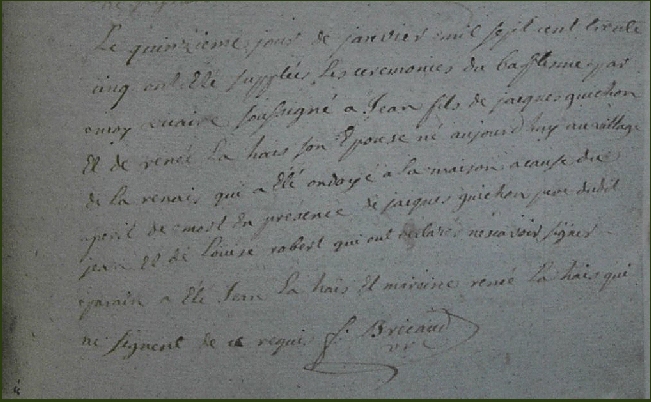 Le quinzieme jour de janvier mil sept cent trente
cinq ont été supplées les ceremonies du baptesme par
moy vicaire soussigné a Jean fils de jacques guichon
Et de renée La hais son Epouse né aujourd huy au village
de la renais qui a été ondoyé a la maison acause du
peril de mort En présence de jacques guichon pere dudit
jean Et de Louise robert qui ont declarés ne scavoir signer
parain a été Jean La hais Et maraine renée La hais qui
ne signent de ce requis f. Bricaud
vre